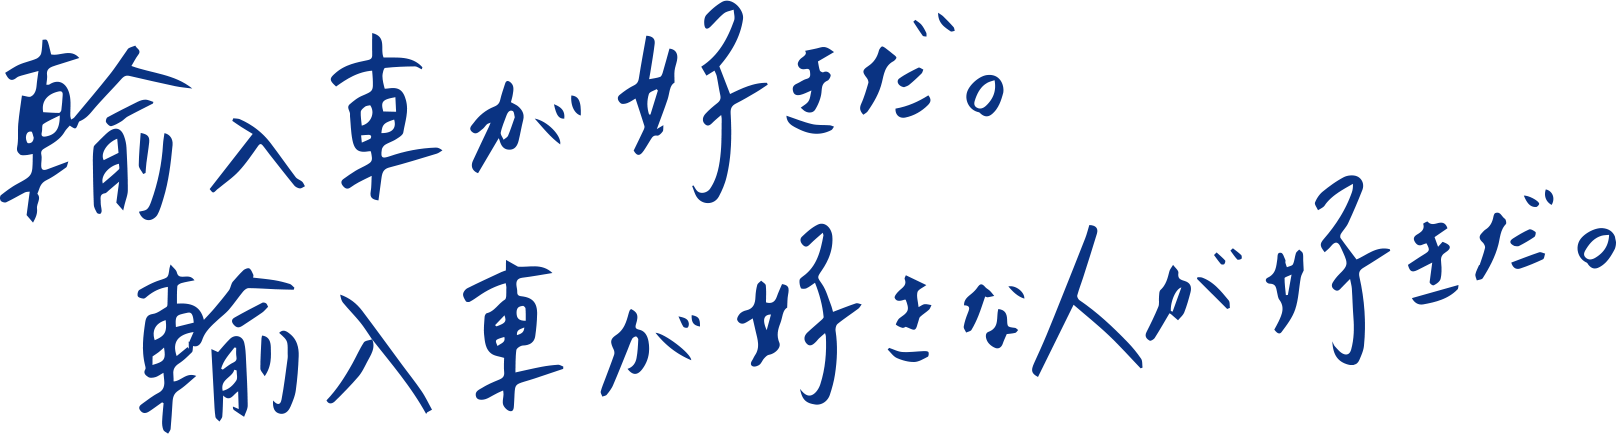 輸入車が好きだ。
輸入車が好きな人が好きだ。